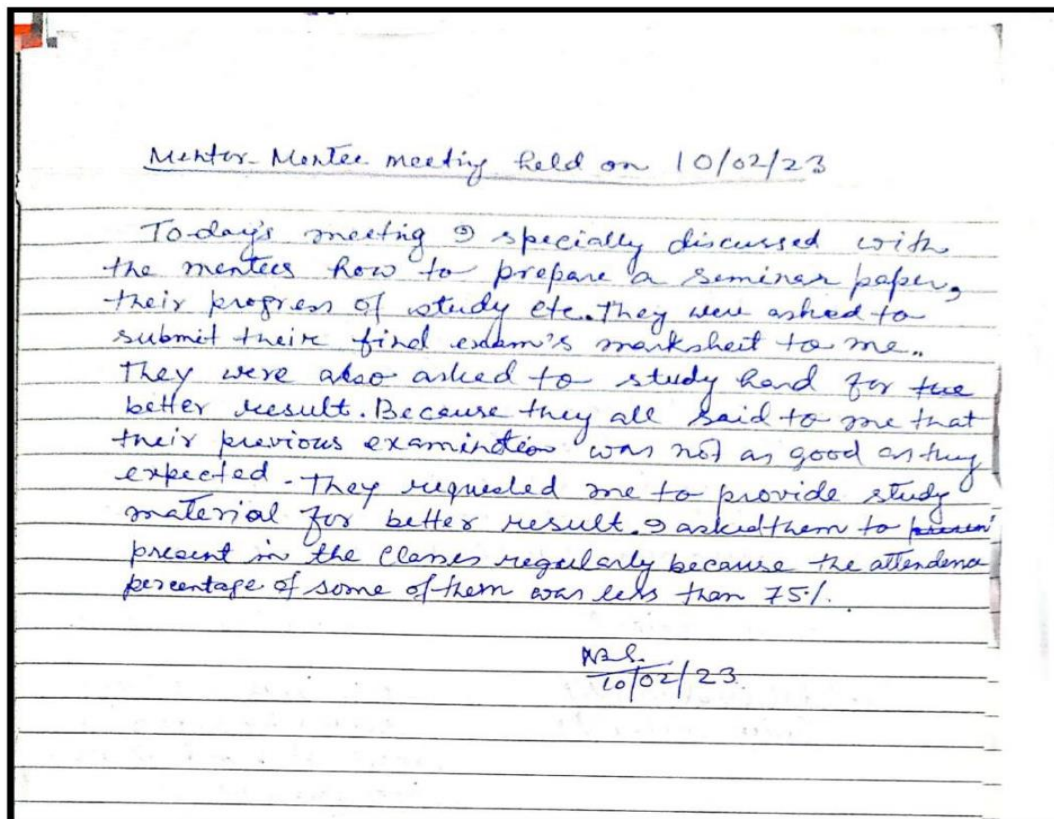 Mentor-Mentee meeting held on 10/02/23
To-day's meeting I specially discussed with
the mentees how to prepare a seminar paper,
their progress of study etc. They were asked to
submit their find exam's marksheet to me.
They were also asked to study hard for the
better result. Because they all said to me that
their previous examination was not as good as they
expected. They requested me to provide study
material for better result. I asked them to
present in the classes regularly because the attendence
percentage of some of them was less than 75%.
10/02/23